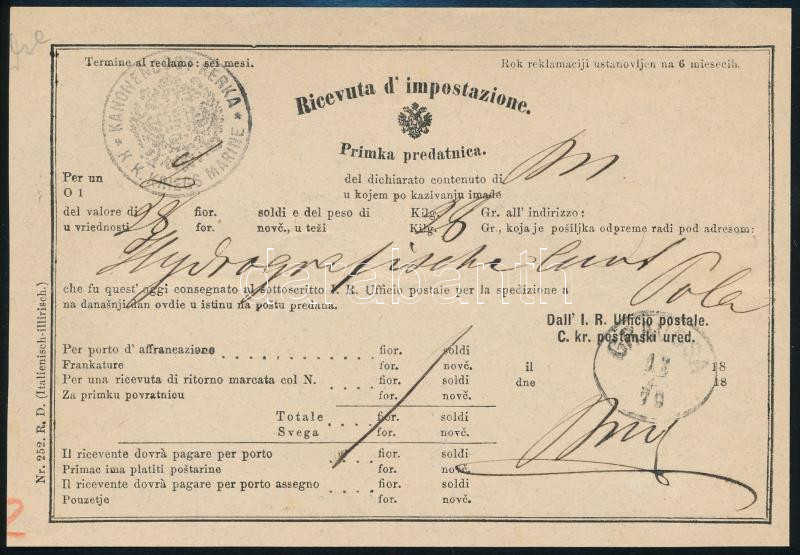 Termine al reclamo: sei mesi.
Rok reklamaciji ustanovljen na 6 miesecih.
* KANONENBOOT KERKA *
K. K. KRIEGS MARINE
Ricevuta d' impostazione.
Primka predatnica.
Per un
O 1
del dichiarato contenuto di
u kojem po kazivanju imade
del valore di fior. soldi e del peso di Kilg. Gr. all' indirizzo:
u vriednosti for. novč., u teži Kilg. Gr., koja je pošiljka odpreme radi pod adresom:
Hydrografische Amt Pola
che fu quest' oggi consegnato al sottoscritto I. R. Ufficio postale per la spedizione a
na današnji dan ovdie u istinu na poštu predana.
Dall' I. R. Ufficio postale.
C. kr. poštanski ured.
Per porto d' affrancazione fior. soldi
Frankature for. novč.
Per una ricevuta di ritorno marcata col N. fior. soldi
Za primku povratnicu for. novč.
il 18
dne 18
13
79
Totale fior. soldi
Svega for. novč.
Il ricevente dovrà pagare per porto fior. soldi
Primac ima platiti poštarine for. novč.
Il ricevente dovrà pagare per porto assegno fior. soldi
Pouzetje for. novč.
Nr. 252. R. D. (Italienisch-illirisch.)
2
darabanth